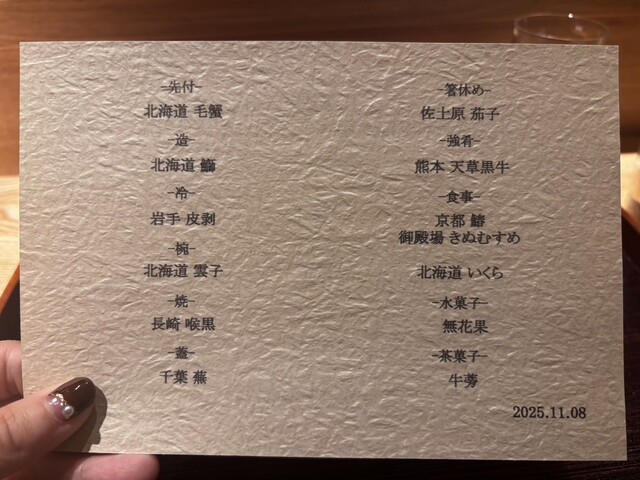 -先付-
北海道 毛蟹
-造-
北海道 鰤
-冷-
岩手 皮剥
-椀-
北海道 雲子
-焼-
長崎 喉黒
-蓋-
千葉 蕪
-箸休め-
佐土原 茄子
-強肴-
熊本 天草黒牛
-食事-
京都 鰆
御殿場 きぬむすめ
北海道 いくら
-水菓子-
無花果
-茶菓子-
牛蒡
2025.11.08